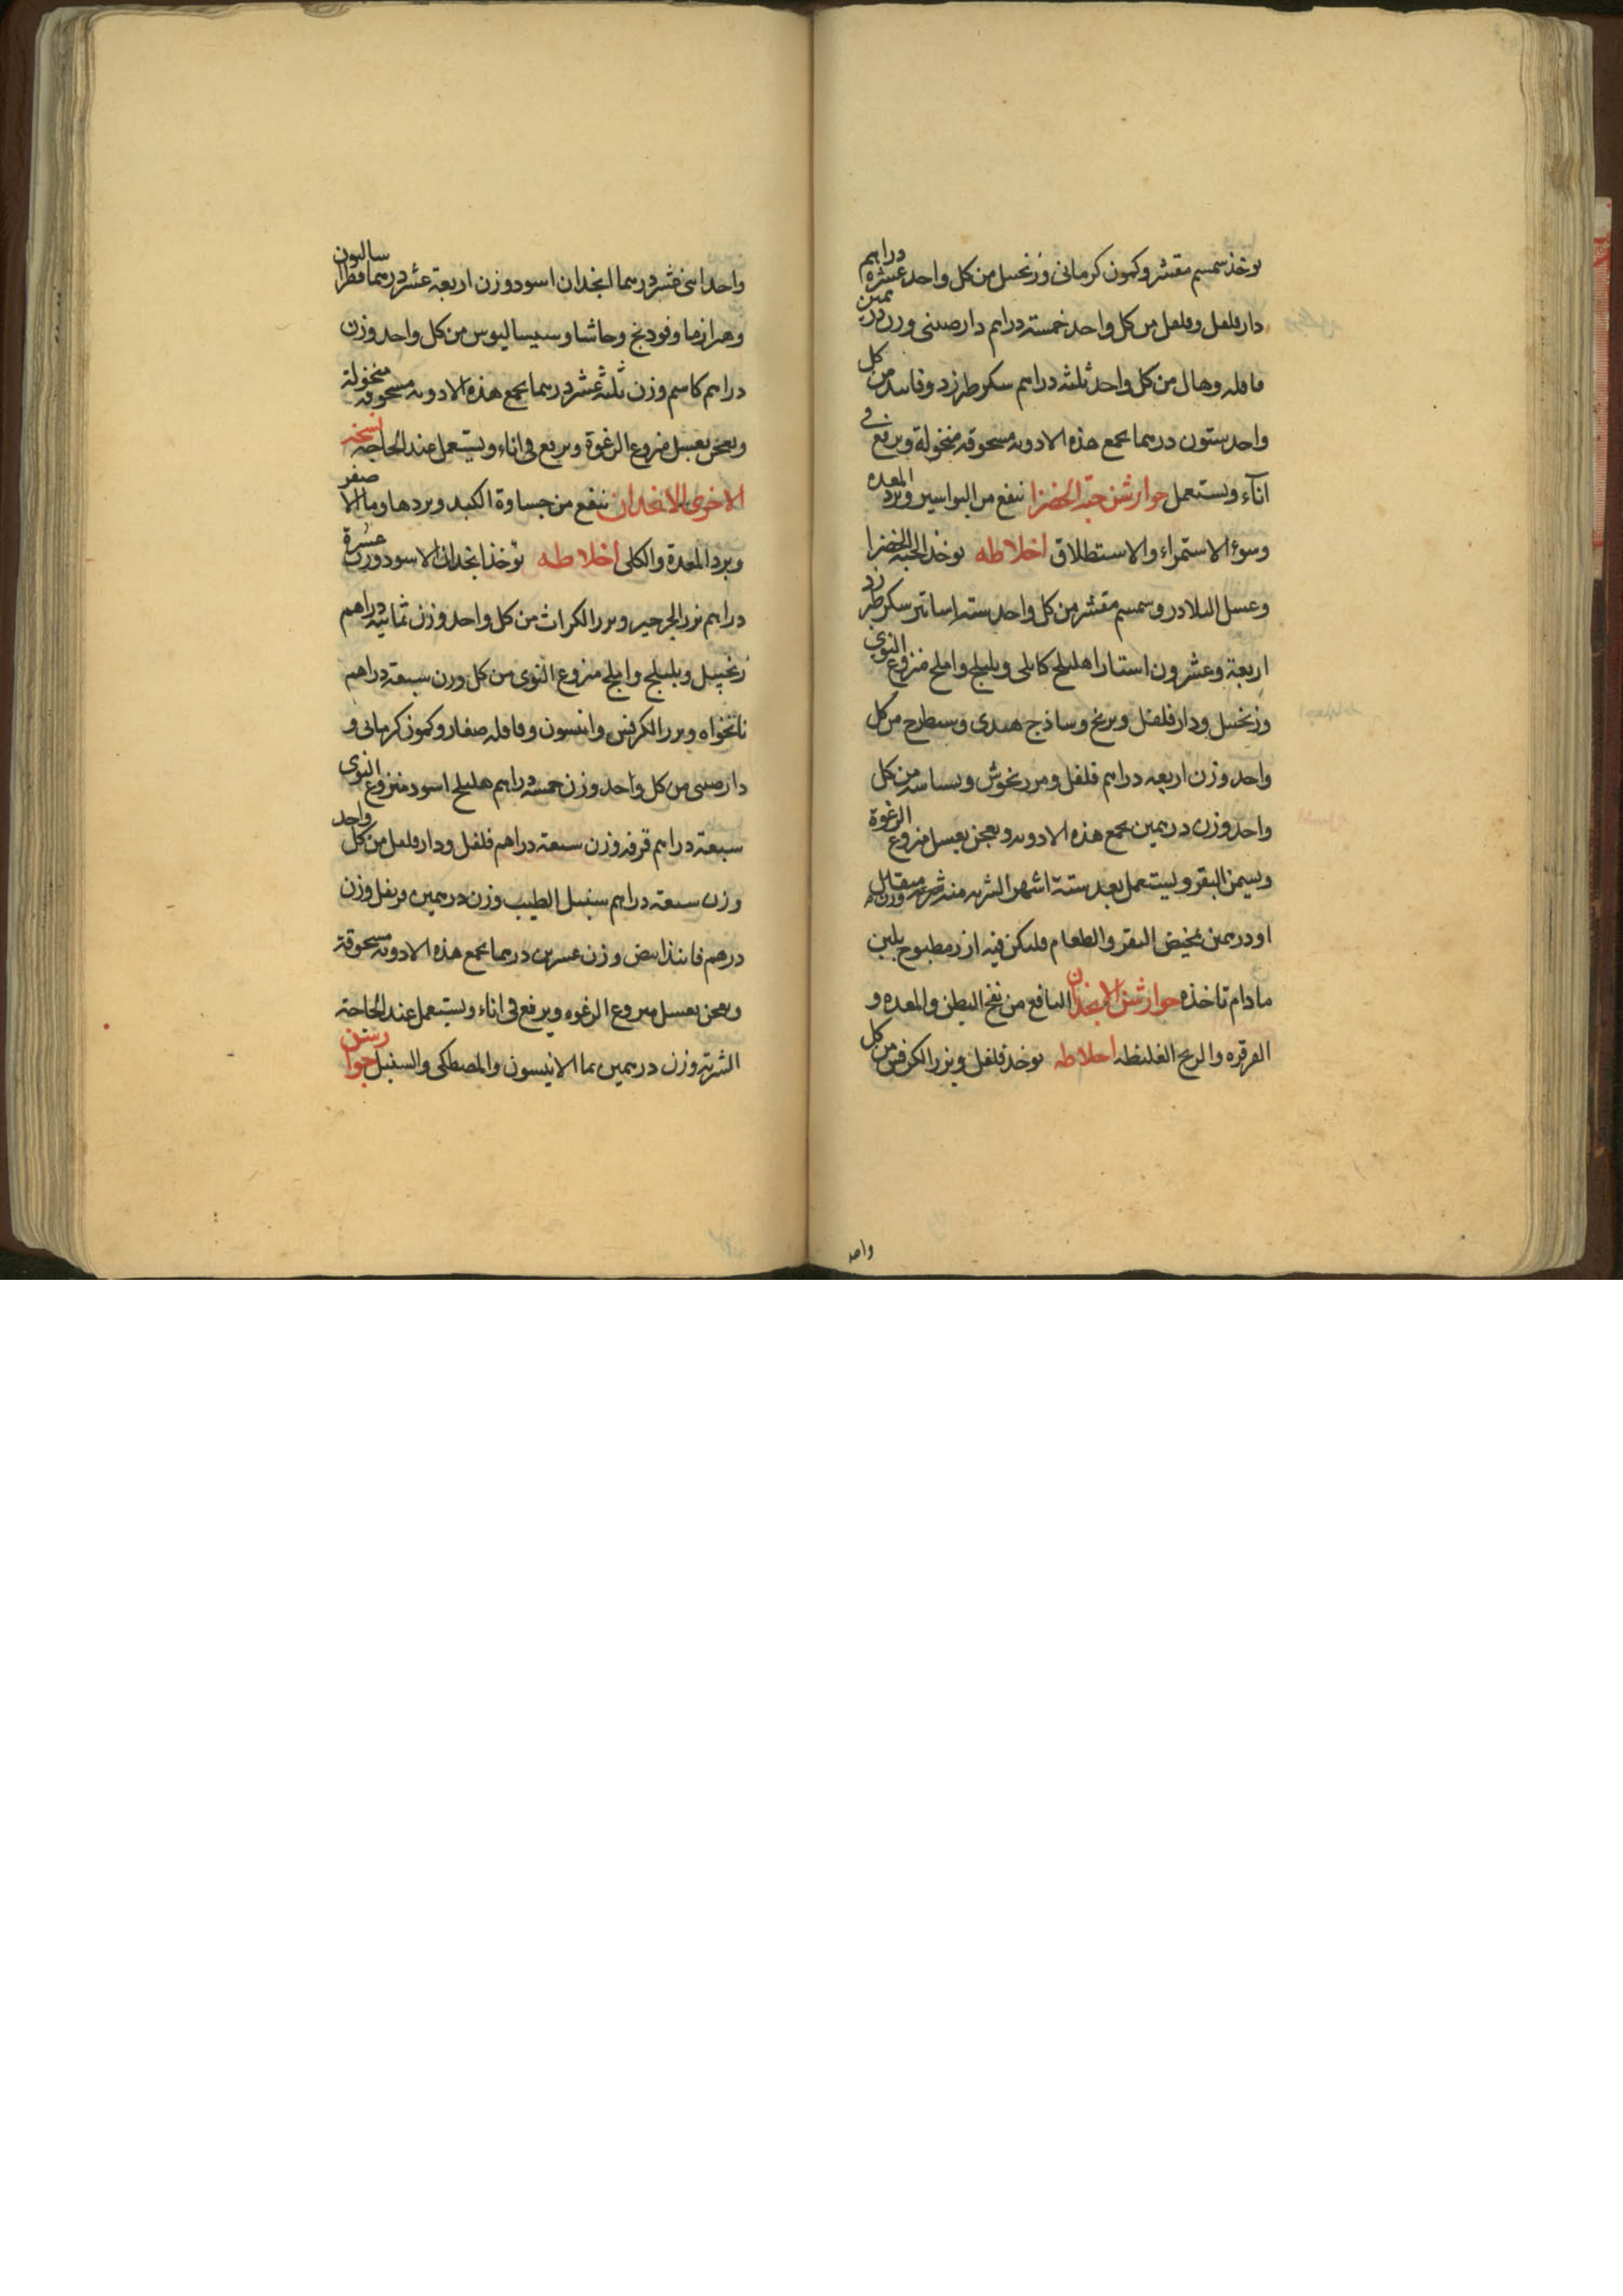 يوخذ سمسم مقشر وكمون كرمانى وزنجبيل من كل واحد عشره دراهم
دار فلفل وفلفل من كل واحد خمسته دراهم دارصينى وزن درهمين
قاقله وهال من كل واحد ثلثه دراهم سكر طبرزد وفانيد من كل
واحد ستون درهما يجمع هذه الادويه مسحوقه منخولة ويرفع فى
انآء ويستعمل جوارشن حبه الخضرا ينفع من البواسير وبرد المعده
وسوء الاستمراء والاستطلاق اخلاطه يوخذ الحبه الخضرا
وعسل البلادر وسمسم مقشر من كل واحد سته اساتير سكر طبرزد
اربعة وعشرون استارا هليلج كابلى وبليلج واملج منزوع النوى
وزنجبيل ودار فلفل وبرنج وساذج هندى وسيطرج من كل
واحد وزن اربعه دراهم فلفل ومرزنجوش وبسباسه من كل
واحد وزن درهمين يجمع هذه الادويه ويعجن بعسل منزوع الرغوة
وبسمن البقر ويستعمل بعد ستة اشهر الشربه منه وزن مثقال
او درهمين بمخيض البقر والطعام فليكن فيه ارز مطبوخ بلبن
مادام تاخذه جوارشن الانجدان النافع من نفخ البطن والمعده و
القرقره والريح الغليظه اخلاطه يوخذ فلفل وبزر الكرفس من كل
واحد
واحد اثنى عشر درهما انجدان اسود وزن اربعة عشر درهما فطراساليون
وهرازما وفودنج وحاشا وسيساليوس من كل واحد وزن
دراهم كاسم وزن ثلثه عشر درهما يجمع هذه الادويه مسحوقه منخولة
ويعجن بعسل منزوع الرغوة ويرفع فى اناء ويستعمل عند الحاجه نسخه
الاخرى للانجدان ينفع من جساوة الكبد وبردها وما الاصفر
وبرد المعدة والكلى اخلاطه يوخذ انجدان الاسود وزن عشرة
دراهم بزر الجرجير وبزر الكراث من كل واحد وزن ثمانيه دراهم
زنجبيل وبليلج واملج منزوع النوى من كل وزن سبعة دراهم
نانخواه وبزر الكرفس وانيسون وقاقله صغار وكمون كرمانى و
دارصينى من كل واحد وزن خمسه دراهم هليلج اسود منزوع النوى
سبعة دراهم قرفه وزن سبعة دراهم فلفل ودار فلفل من كل واحد
وزن سبعة دراهم سنبل الطيب وزن درهمين قرنفل وزن
درهم فانيذ ابيض وزن عشرين درهما يجمع هذه الادويه مسحوقة
ويعجن بعسل منزوع الرغوه ويرفع فى اناء ويستعمل عند الحاجة
الشربة وزن درهمين بما الانيسون والمصطكى والسنبل جوارشن